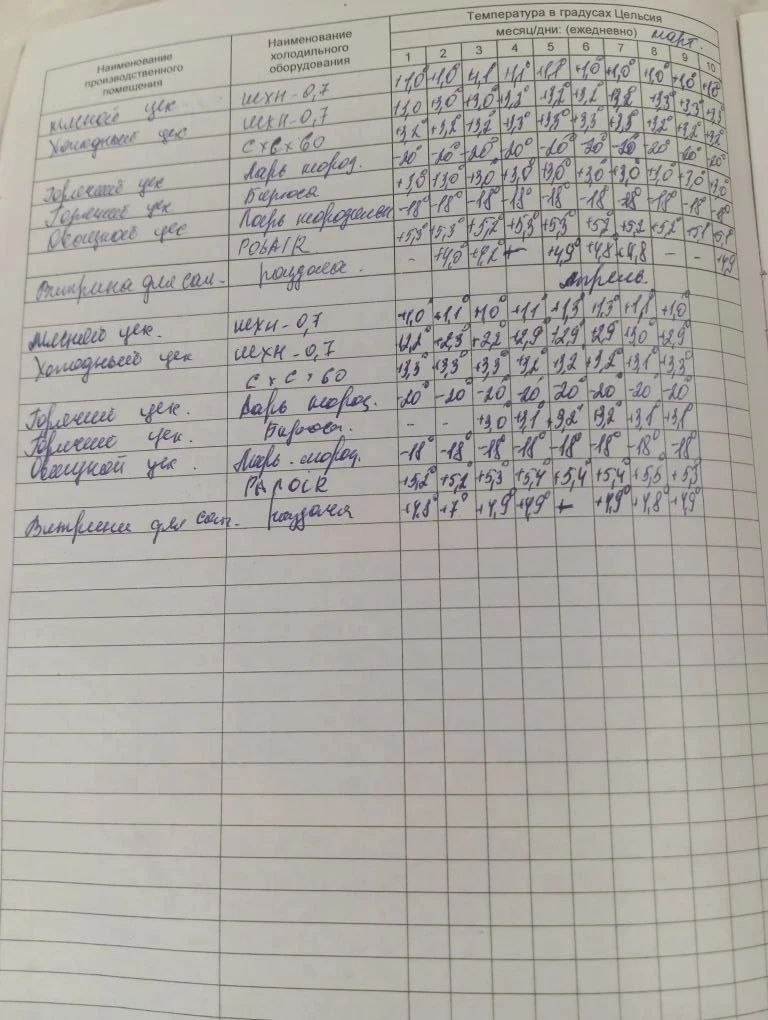 Температура в градусах Цельсия
Наименование производственного помещения
Наименование холодильного оборудования
месяц/дни: (ежедневно) март.
1 2 3 4 5 6 7 8 9 10
мясной цех ШХН-0,7 +1,0° +1,0° +1,1 +1,1° +1,1° +1,0° +1,0° +1,0° +1,0°
Холодный цех ШХН-0,7 +3,0° +3,0° +3,2° +3,2° +3,2° +3,3° +3,3°
СХС×60 +3,2° +3,2° +3,2° +3,3° +3,3° +3,3° +3,3° +3,2° +3,2° +3,2
Горячий цех Ларь мороз. -20° -20° -20° -20° -20° -20° -20° -20° -20° -20°
Горячий цех Бирюса +3,0° +3,0° +3,0° +3,0° +3,0° +3,0 +3,0° +3,0° +3,0° +3,0
Овощной цех Ларь -18° -18° -18° -18° -18° -18 -18° -18° -18° -18°
POLAIR +5,3° +5,3° +5,2° +5,3 +5,3° +5,2° +5,2 +5,2° +5,1 +5,1
Витрина для сал. раздача. - +4,0° +4,2° +4,9° +4,8° +4,8 - - +4,9
Апрель.
мясной цех. ШХН-0,7 +1,0° +1,1° +1,0° +1,1° +1,3° +1,3° +1,1° +1,0°
Холодный цех ШХН-0,7 +2,2° +2,3° +2,2° +2,9° +2,9° +2,9° +3,0° +2,9°
СХС×60 +3,3° +3,3° +3,3° +3,2° +3,2 +3,2° +3,1° +3,3°
Горячий цех. Ларь мороз. -20° -20° -20° -20° -20° -20° -20° -20°
Горячий цех. Бирюса. - - +3,0° +3,1° +3,2° +3,2° +3,1° +3,1
Овощной цех. Ларь. мороз. -18° -18° -18° -18° -18° -18° -18° -18°
+5,2° +5,2 +5,3° +5,4° +5,4° +5,4° +5,5 +5,5
Витрина для сал. раздача +4,8° +7° +4,9° +4,9° +4,9° +4,8° +4,9°